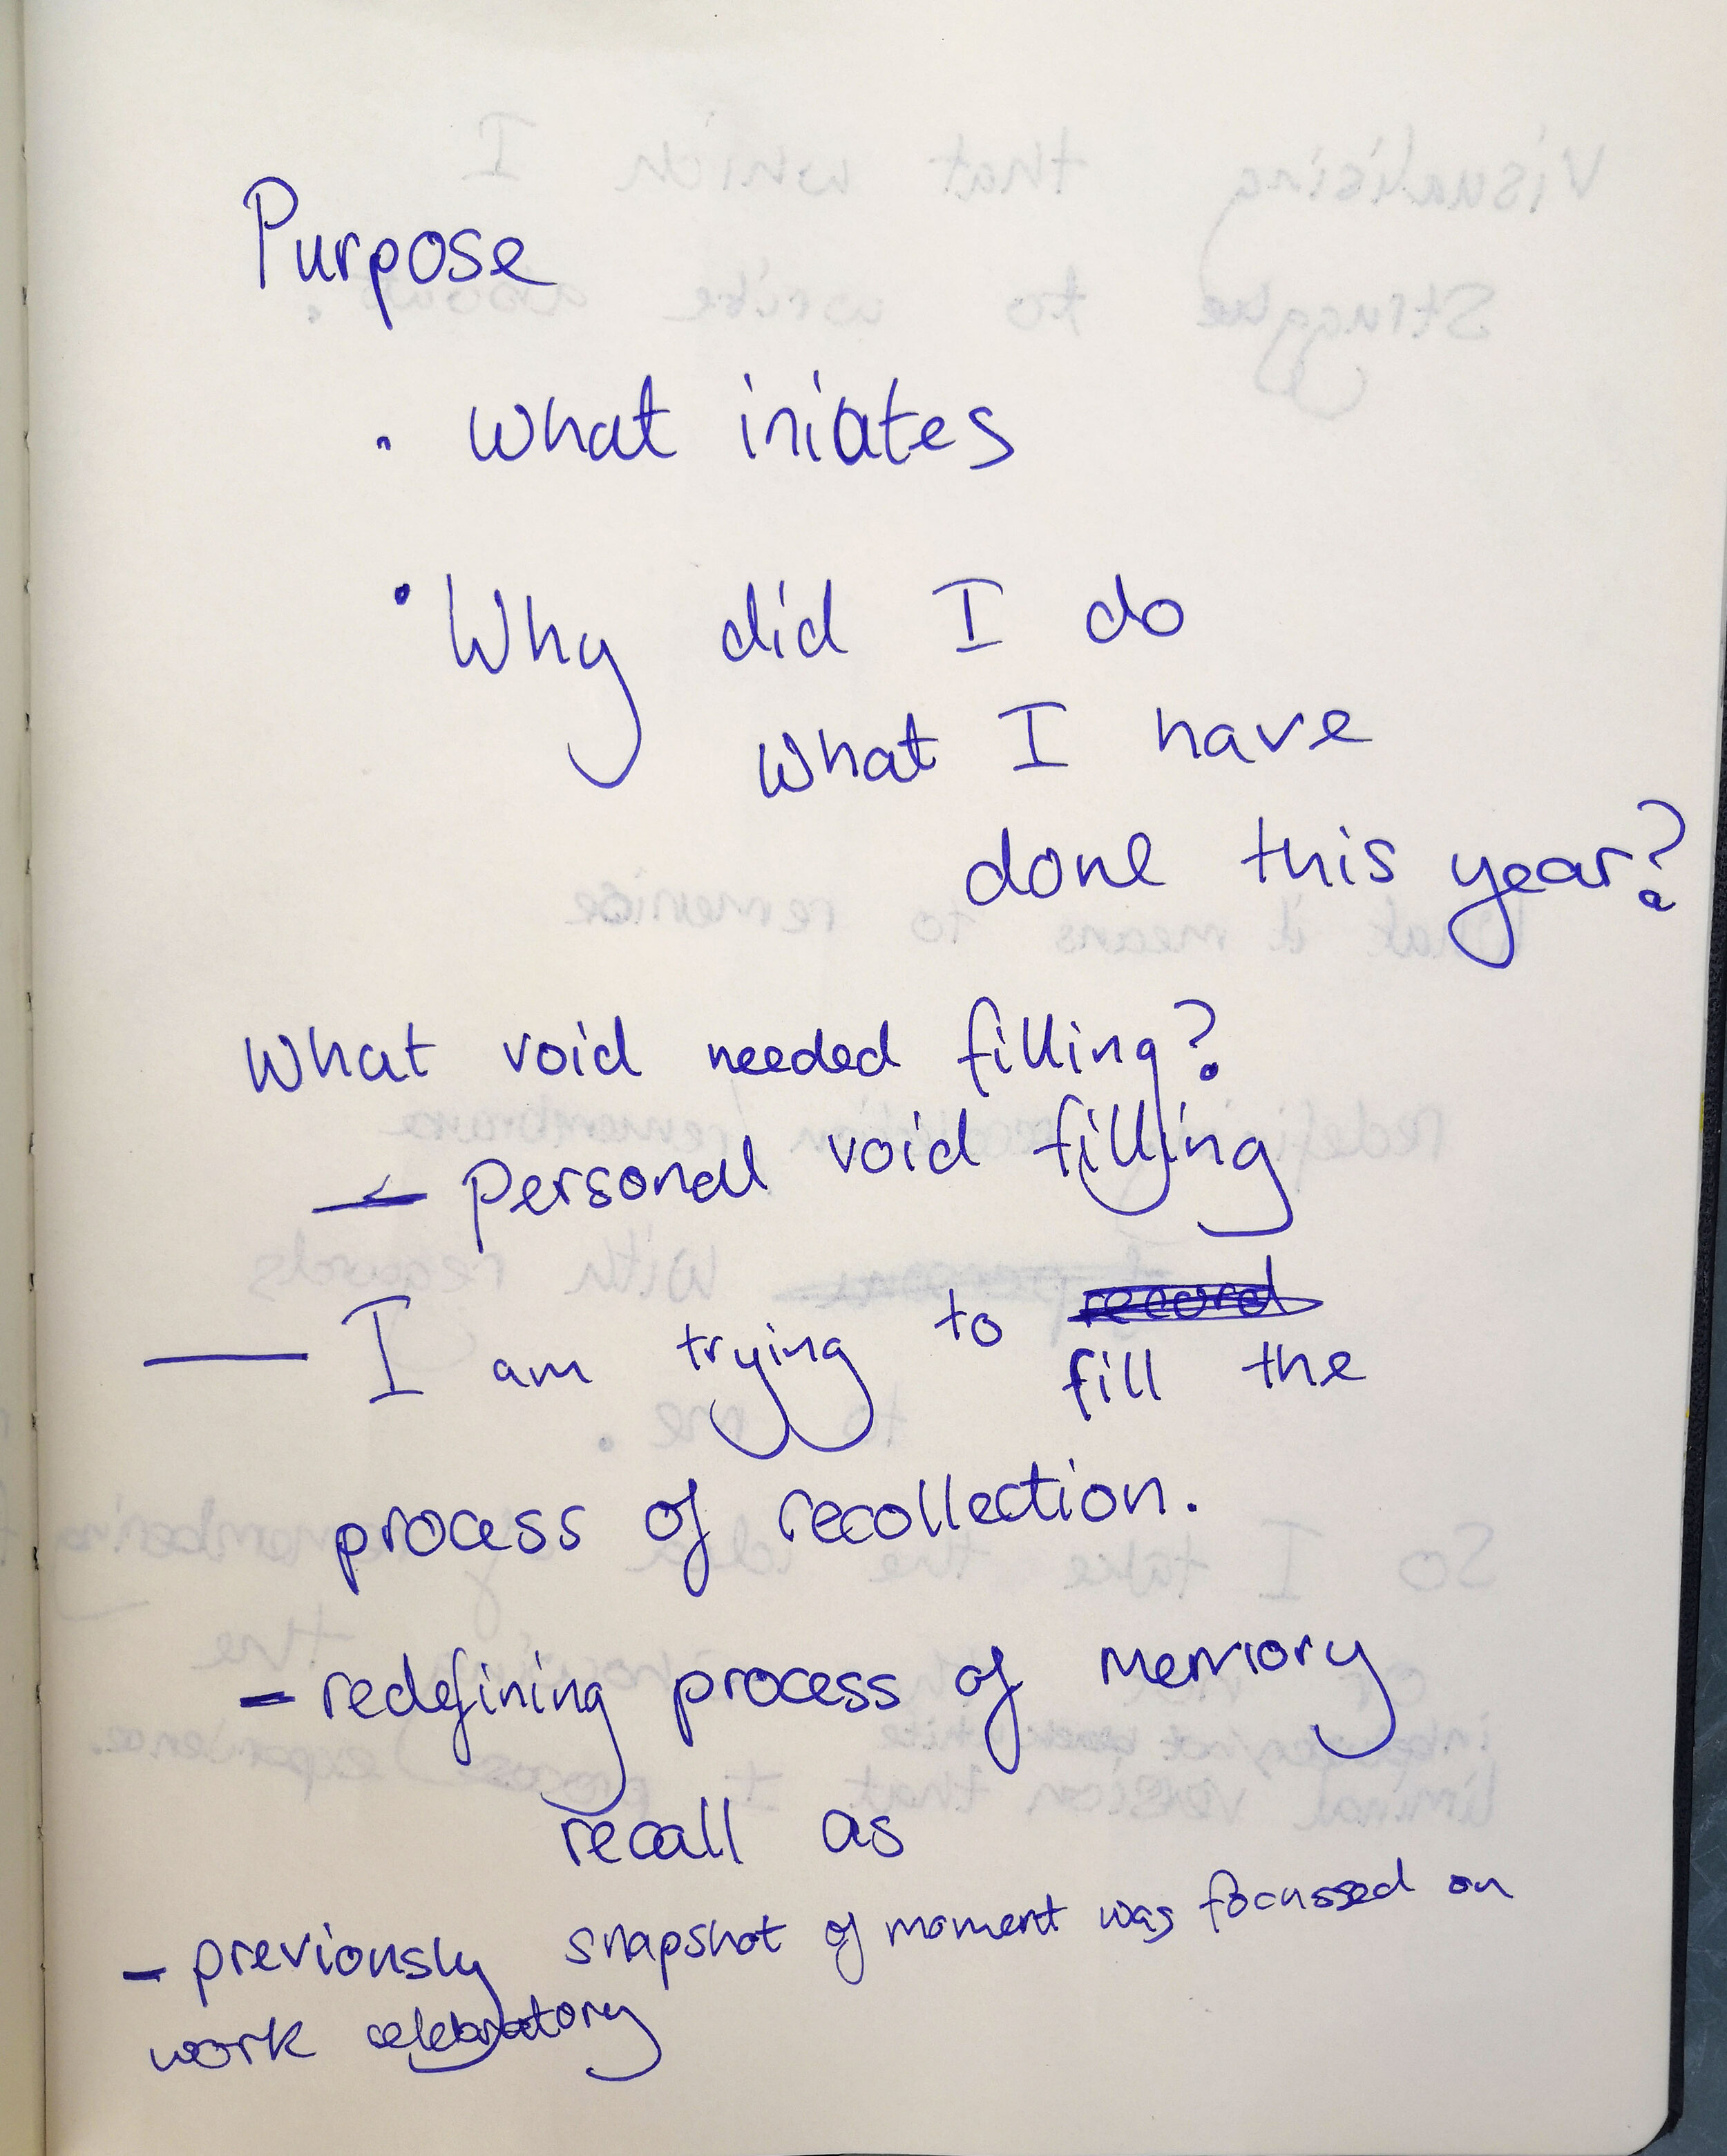 Purpose
• what iniates
• Why did I do
what I have
done this year?
What void needed filling?
– personal void filling
— I am trying to record
fill the
process of recollection.
– redefining process of memory
recall as
– previously snapshot of moment was focussed on
work celebratory